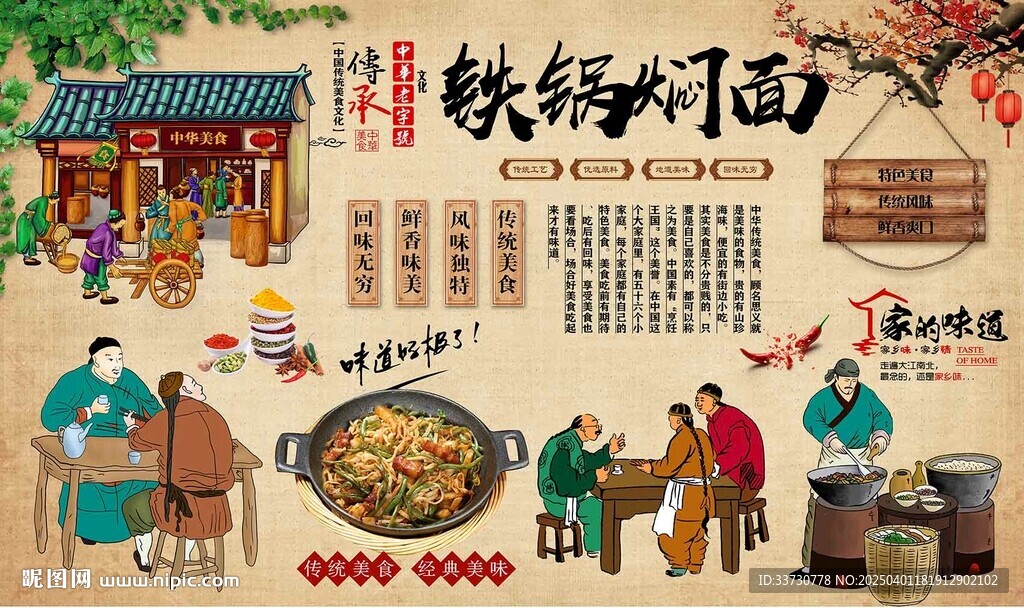 铁锅焖面
【中国传统美食文化】
傳承
中華美食
中華老字號
文化
传统工艺
优选原料
地道美味
回味无穷
中华美食
特色美食
传统风味
鲜香爽口
传统美食
风味独特
鲜香味美
回味无穷
中华传统美食，顾名思义就
是美味的食物，贵的有山珍
海味，便宜的有街边小吃。
其实美食是不分贵贱的，只
要是自己喜欢的，都可以称
之为美食。中国素有"烹饪
王国"这个美誉。在中国这
个大家庭里，有五十六个小
家庭，每个家庭都有自己的
特色美食。美食吃前有期待
、吃后有回味，享受美食也
要看场合，场合好美食吃起
来才有味道。
味道好极了！
家的味道
家乡味·家乡情
TASTE
OF HOME
走遍大江南北，
最念的，还是家乡味...
传统美食 经典美味
昵图网 www.nipic.com
ID:33730778 NO:20250401181912902102